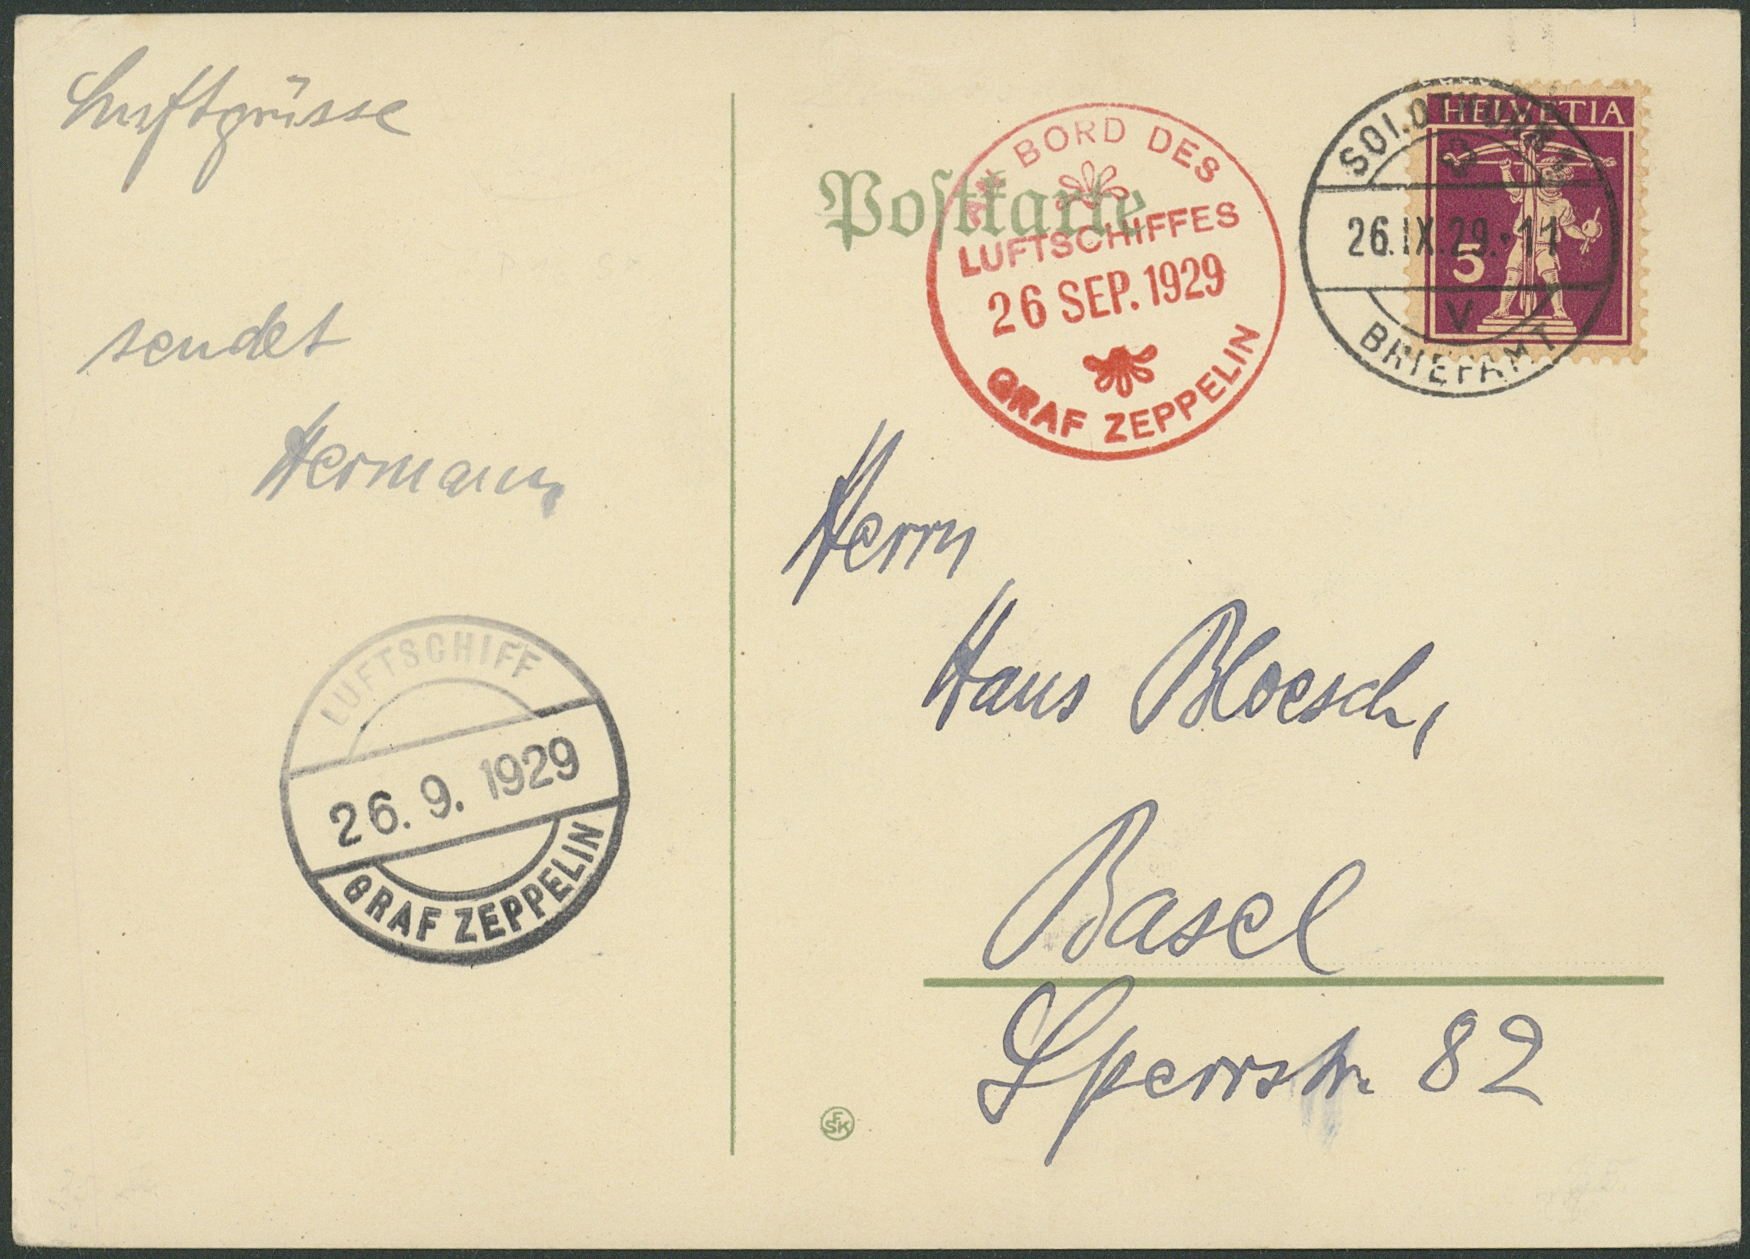 Luftgrüsse
sendet
Hermann
LUFTSCHIFF
26.9.1929
GRAF ZEPPELIN
Postkarte
AN BORD DES
LUFTSCHIFFES
26 SEP. 1929
GRAF ZEPPELIN
HELVETIA
5
SOLOTHURN 1
26.IX.29.-11
V
BRIEFAMT
Herrn
Hans Bloesch,
Basel
Sperrstr. 82
FSK